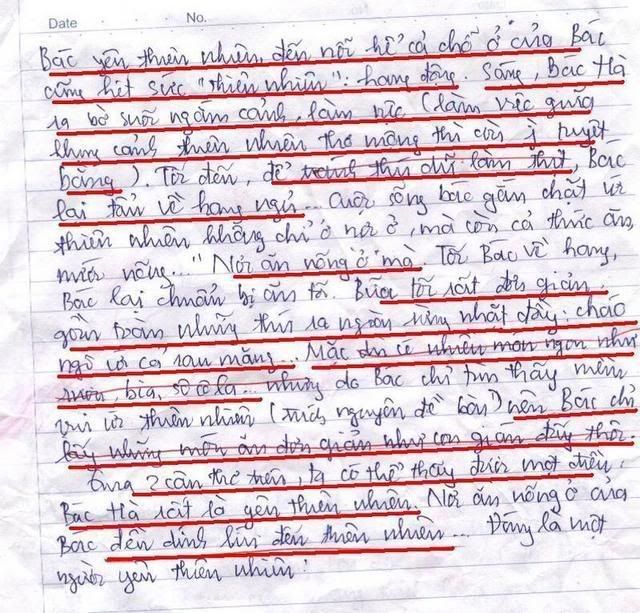 Date No.
Bác yên thiên nhiên, đến nỗi hể cả chổ ở của Bác
cũng hết sức "thiên nhiên": hang động. Sáng, Bác Hà
ra bờ suối ngắm cảnh, làm nịc (làm việc giữa
khung cảnh thiên nhiên thơ mộng thì còn j tuyệt
bằng). Tối đến, để tránh thú dữ làm thịt, Bác
lại tản về hang ngủ... Cuộc sống bác gắn chặt ví
thiên nhiên không chỉ ở nơi ở, mà còn cả thức ăn,
nước nống..." Nơi ăn nống ở mà. Tối Bác về hang,
Bac lại chuẩn bị ăn tố. Bữa tối rất đơn giản,
gồm toàn những thứ ra ngoài rừng nhặt đầy: cháo
ngô ví cả rau măng... Mặc du có nhiều món ngon như
rượu, bia, sô cô la... nhưng do Bác chỉ tìm thấy mềm
vui ví thiên nhiên (trích nguyên đề bài) nên Bác chỉ
lấy những món ăn đơn giản như con gián đấy thôi.
Qua 2 câu thơ trên, ta có thể thấy được một điều,
Bác Hà rất là yên thiên nhiên. Nơi ăn nống ở của
Bac đền dính líu đến thiên nhiên... Đúng là một
người yên thiên nhiên!